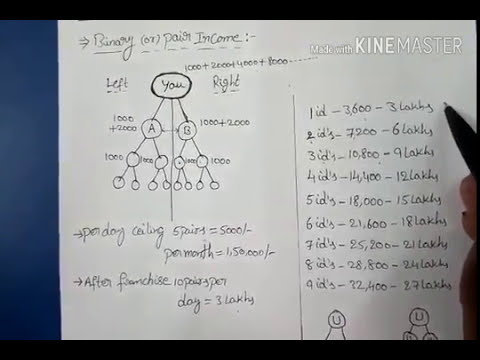 → Binary (or) Pair Income :-
Made with KINEMASTER
1000+2000+4000+8000------
Left You Right
1000
+2000
A B 1000+2000
1000 1000 1000 1000
→ per day ceiling 5pairs = 5000/-
per month = 1,50,000/-
→ After franchise 10 pairs per
day = 3 Lakhs
1 id - 3,600 - 3 Lakhs
2 id's - 7,200 - 6 Lakhs
3 id's - 10,800 - 9 Lakhs
4 id's - 14,400 - 12 Lakhs
5 id's - 18,000 - 15 Lakhs
6 id's - 21,600 - 18 Lakhs
7 id's - 25,200 - 21 Lakhs
8 id's - 28,800 - 24 Lakhs
9 id's - 32,400 - 27 Lakhs
U U